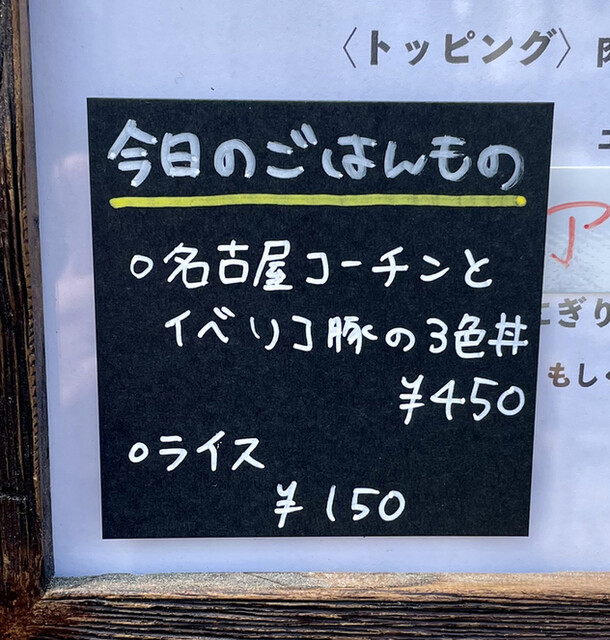 〈トッピング〉
今日のごはんもの
○名古屋コーチンと
イベリコ豚の3色丼
¥450
○ライス
¥150
ア
にぎり
もしく